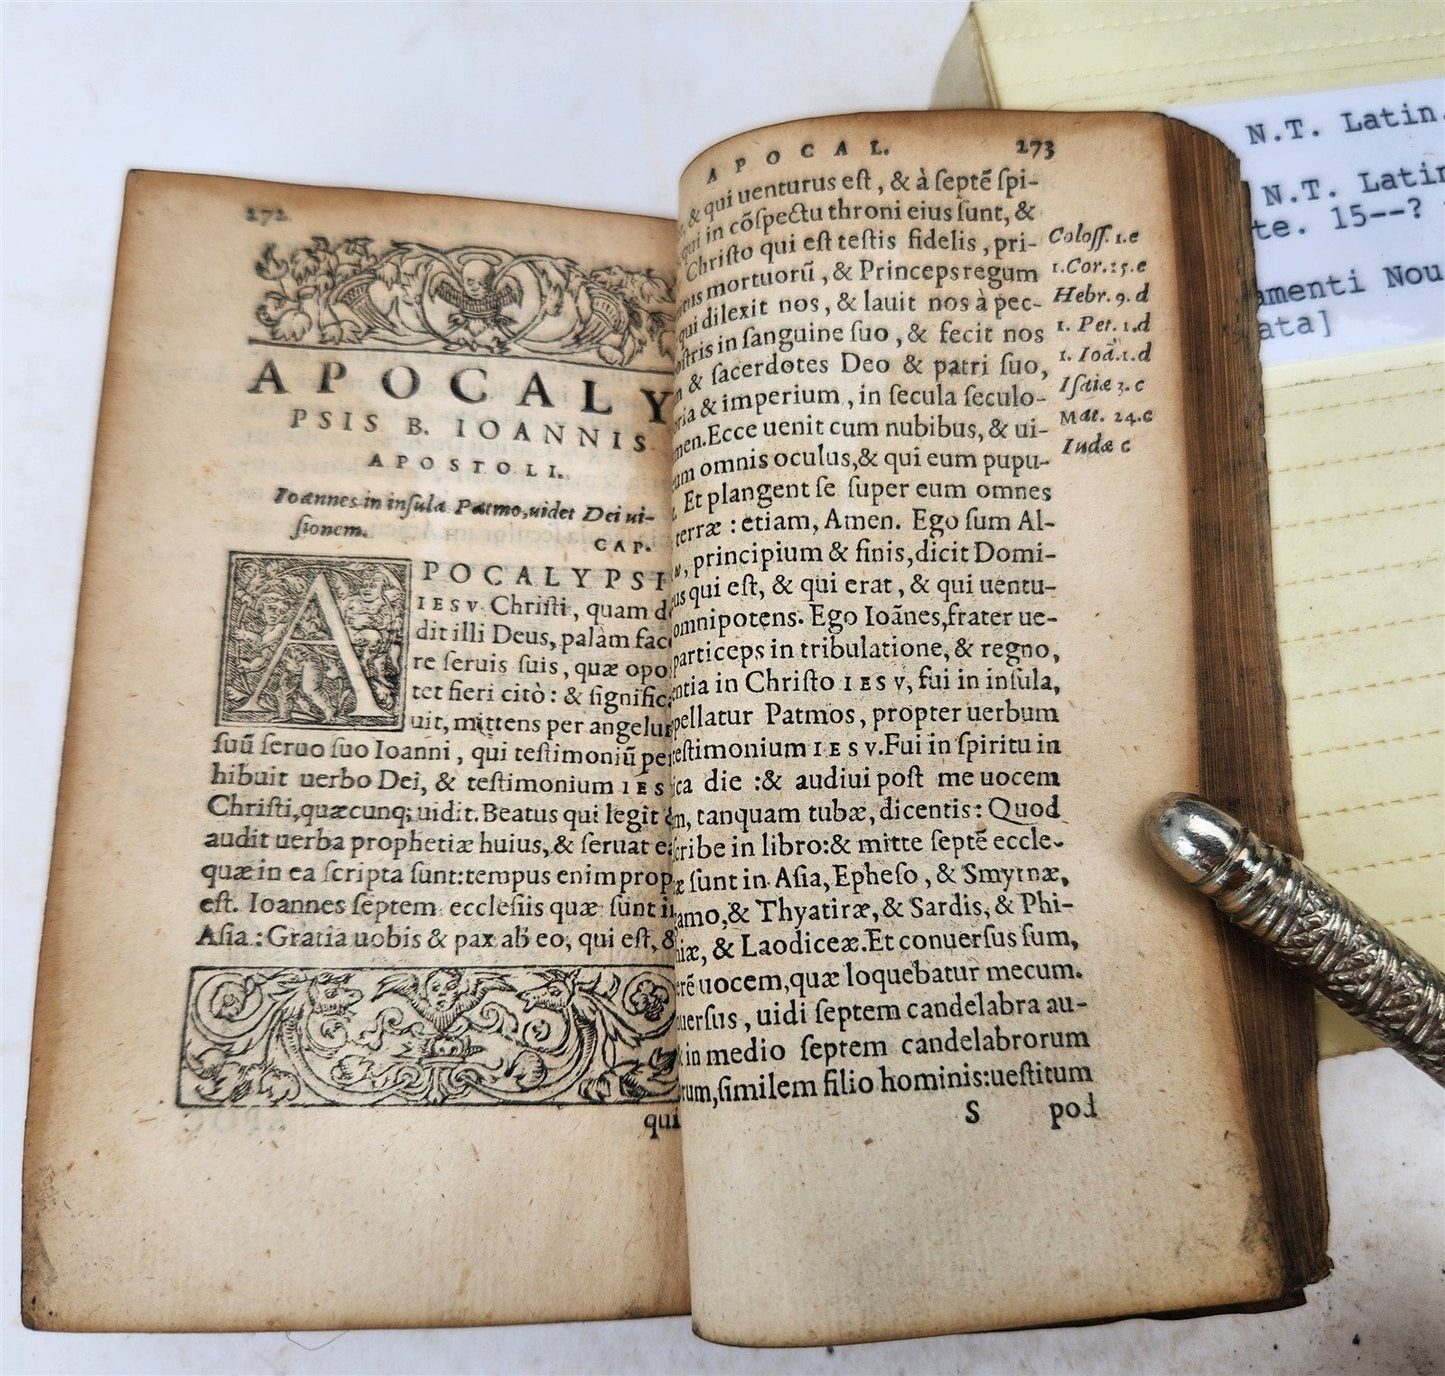 272
APOCALY
PSIS B. IOANNIS
APOSTOLI.
Ioannes in insula Patmo, uidet Dei ui-
sionem.
CAP.
APOCALYPSI
IESV Christi, quam de
dit illi Deus, palàm face
re seruis suis, quæ opo
tet fieri citò: & signific
uit, mittens per angelu
suũ seruo suo Ioanni, qui testimoniũ per
hibuit uerbo Dei, & testimonium IES
Christi, quæcunq; uidit. Beatus qui legit
audit uerba prophetiæ huius, & seruat ea
quæ in ea scripta sunt: tempus enim prop
est. Ioannes septem ecclesiis quæ sunt in
Asia: Gratia uobis & pax ab eo, qui est, &
qui
APOCAL. 273
& qui uenturus est, & à septẽ spi-
qui in cõspectu throni eius sunt, &
Christo qui est testis fidelis, pri-
mortuorũ, & Princeps regum
qui dilexit nos, & lauit nos à pec-
ostris in sanguine suo, & fecit nos
& sacerdotes Deo & patri suo,
oria & imperium, in secula seculo-
men. Ecce uenit cum nubibus, & ui-
um omnis oculus, & qui eum pupu-
Et plangent se super eum omnes
terræ: etiam, Amen. Ego sum Al-
principium & finis, dicit Domi-
us qui est, & qui erat, & qui uentu-
omnipotens. Ego Ioãnes, frater ue-
particeps in tribulatione, & regno,
entia in Christo IESV, fui in insula,
pellatur Patmos, propter uerbum
testimonium IESV. Fui in spiritu in
ica die: & audiui post me uocem
m, tanquam tubæ, dicentis: Quod
cribe in libro: & mitte septẽ eccle-
æ sunt in Asia, Epheso, & Smyrnæ,
amo, & Thyatiræ, & Sardis, & Phi-
iæ, & Laodiceæ. Et conuersus sum,
rẽ uocem, quæ loquebatur mecum.
uersus, uidi septem candelabra au-
in medio septem candelabrorum
rum, similem filio hominis: uestitum
S pod
Coloss. 1.e
1.Cor.15.e
Hebr. 9. d
1. Pet. 1.d
1. Ioã.1.d
Isaiæ 3. c
Mat. 24.c
Iudæ c
N.T. Latin.
N.T. Latin
te. 15--?
amenti Nou
ata]